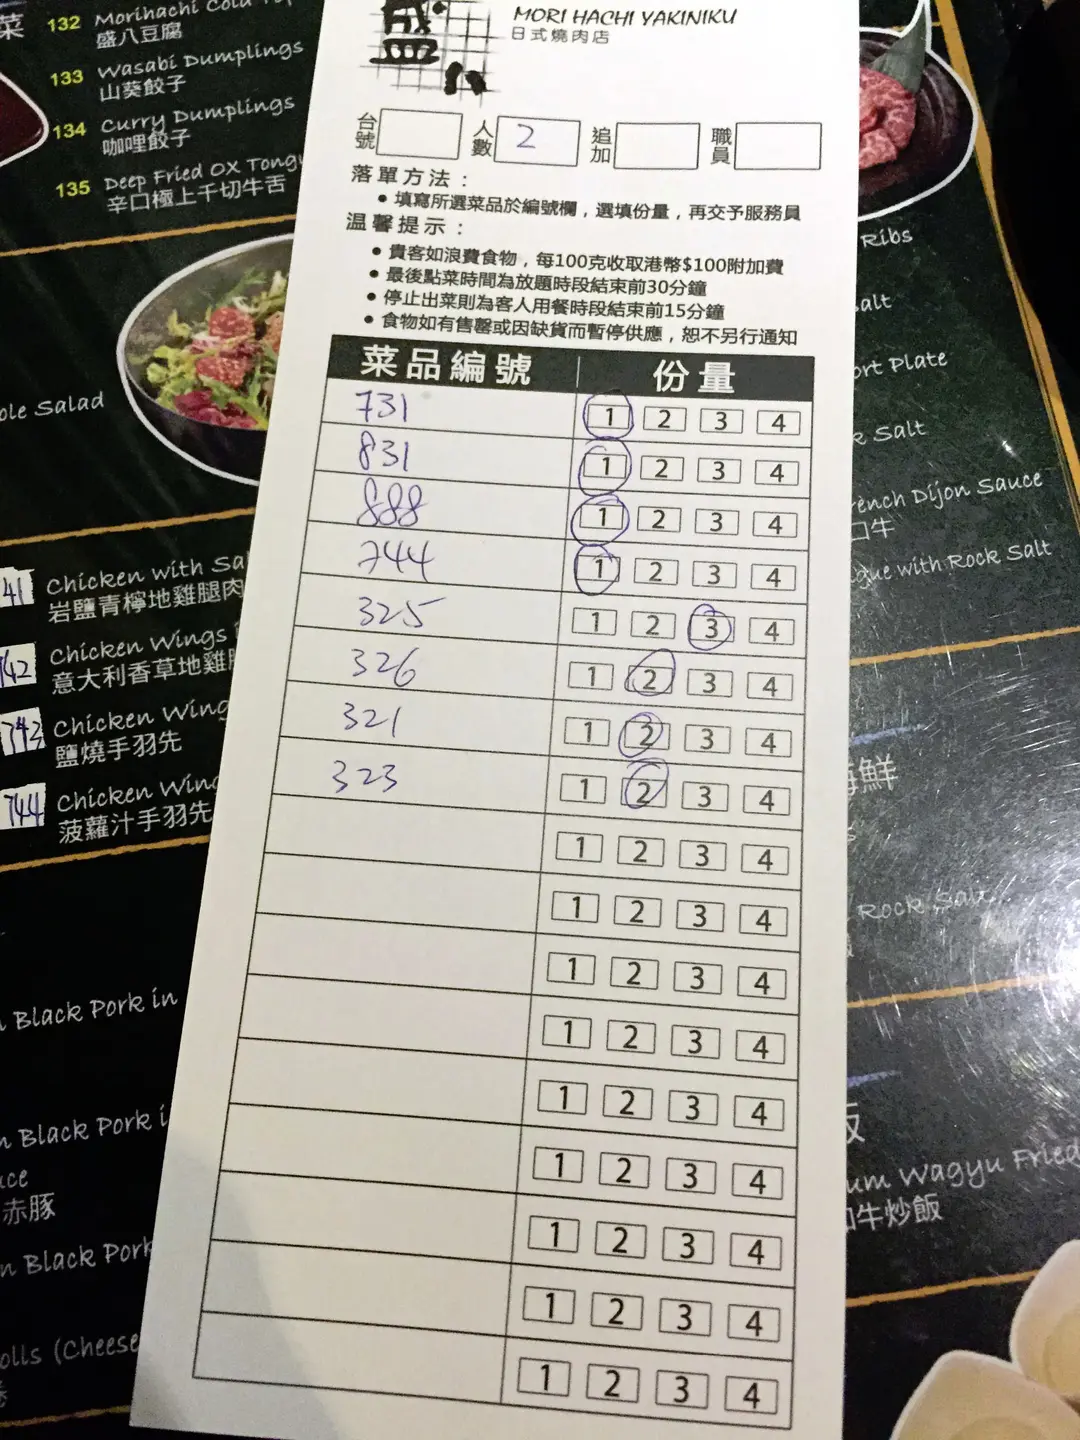 盛八
MORI HACHI YAKINIKU
日式燒肉店
台號
人數 2
追加
職員
落單方法：
• 填寫所選菜品於編號欄，選填份量，再交予服務員
溫馨提示：
• 貴客如浪費食物，每100克收取港幣$100附加費
• 最後點菜時間為放題時段結束前30分鐘
• 停止出菜則為客人用餐時段結束前15分鐘
• 食物如有售罄或因缺貨而暫停供應，恕不另行通知
菜品編號 份量
731 1 2 3 4
831 1 2 3 4
888 1 2 3 4
744 1 2 3 4
325 1 2 3 4
326 1 2 3 4
321 1 2 3 4
323 1 2 3 4
1 2 3 4
1 2 3 4
1 2 3 4
1 2 3 4
1 2 3 4
1 2 3 4
1 2 3 4
1 2 3 4
1 2 3 4
菜
132 Morihachi Cold
盛八豆腐
133 Wasabi Dumplings
山葵餃子
134 Curry Dumplings
咖哩餃子
135 Deep Fried OX
辛口極上千切牛舌
Salad
41 Chicken with
岩鹽青檸地雞腿肉
742 Chicken Wings
意大利香草地雞
743 Chicken Wing
鹽燒手羽先
744 Chicken Wing
菠蘿汁手羽先
Black Pork in
Black Pork
赤豚
Black Pork
(Cheese
Ribs
Plate
Salt
Dijon Sauce
口牛
with Rock Salt
鮮
Rock Salt
Wagyu Fried
牛炒飯